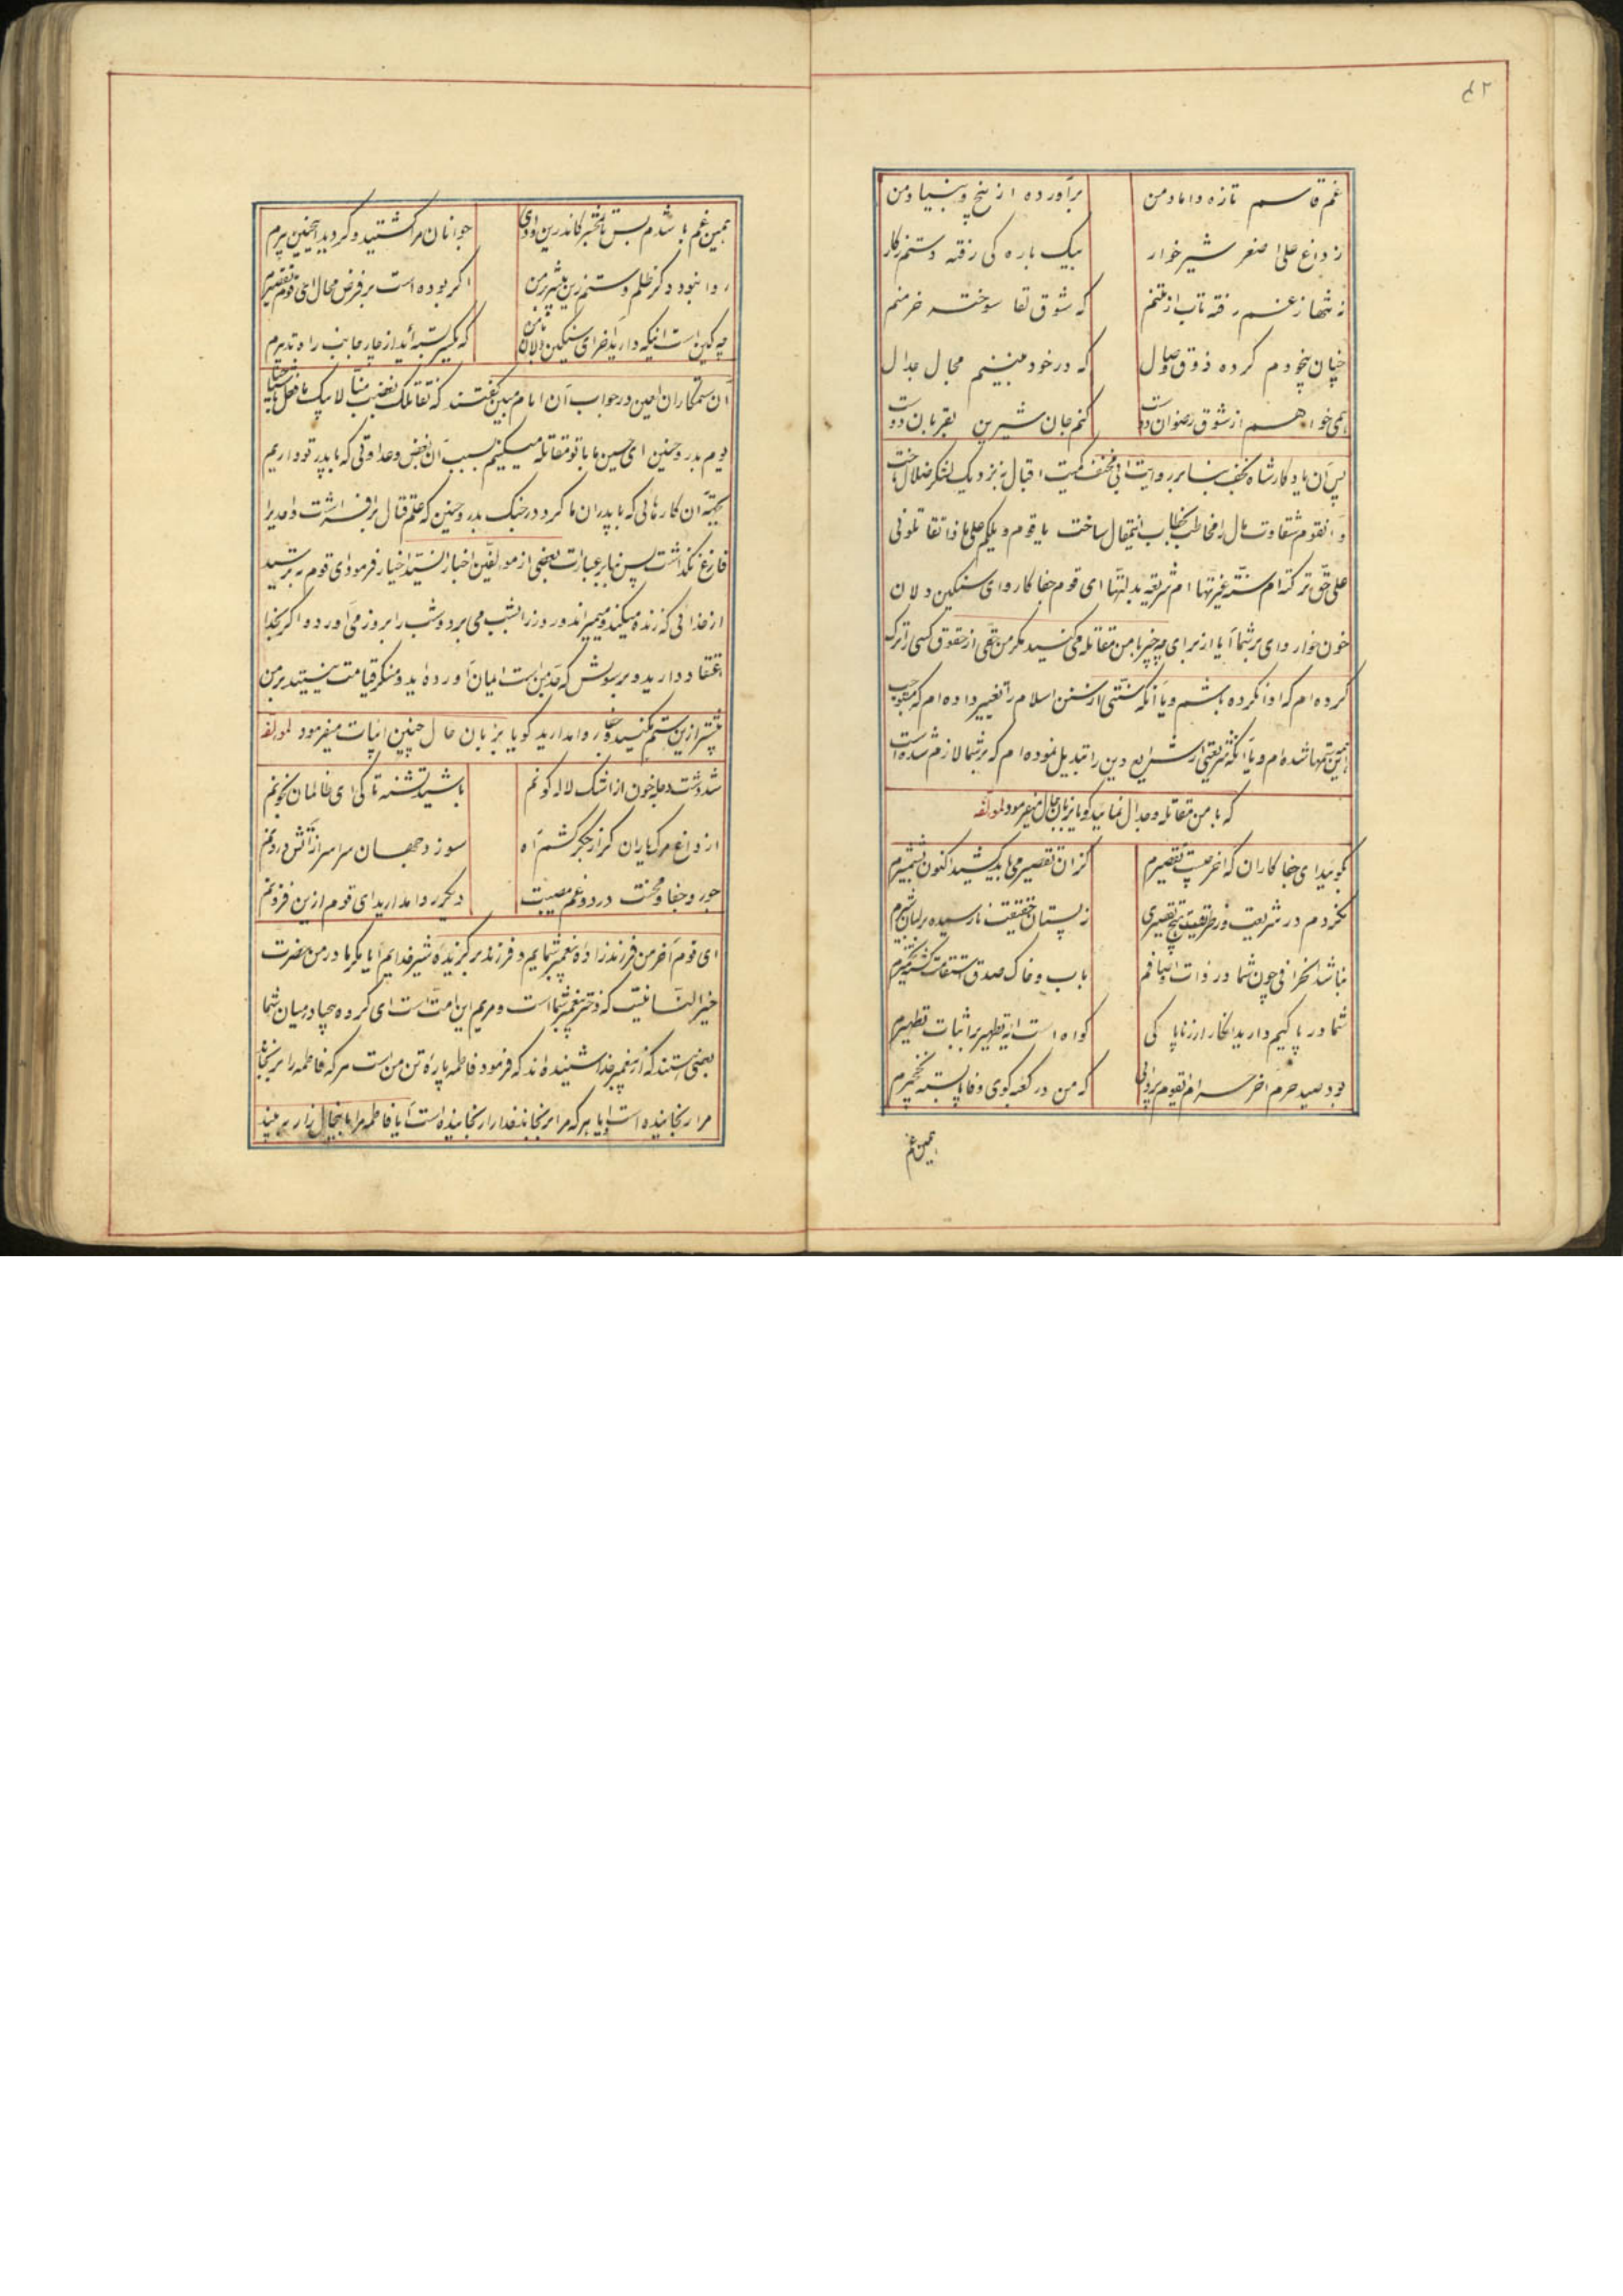 ۴۲
غم قاسم تازه داماد من برآورده از بیخ و بنیاد من
ز داغ علی اصغر شیر خوار بیک باره کی رفته دستم ز کار
نه تنها ز غم رفته تاب از تنم که شوق لقا سوخته خرمنم
چنان بیخودم کرده ذوق وصال که در خود نمی بینم مجال جدال
همی خواهم از شوق رضوان دوست کنم جان شیرین بقربان دوست
پس آن یادکار شاه نجف بنا بر روایت ابی مخنف کمیت اقبال به نزدیک لشکر ضلال تاخت
و آنقوم شقاوت مآل را مخاطب بخطاب اینمقال ساخت یا قوم ویلکم علی ماذا تقاتلونی
علی حق ترکته ام سنّة غیرتها ام شریعه بدلتها ای قوم جفا کار و ای سنکین دلان
خون خوار وای بر شما آیا از برای چه چیز با من مقاتله می کنید مکر من حقی از حقوق کسی را ترک
کرده ام که ادا نکرده باشم و یا آنکه سنتی از سنن اسلام را تغییر داده ام که مستوجب
این ستمها شده ام و یا آنکه شریعتی از شرایع دین را تبدیل نموده ام که بر شما لازم شده است
که با من مقاتله و جدال نمایید کویا بزبان حال میفرمود لمؤلفه
بکوئید ای جفا کاران که آخر چیست تقصیرم کز ان تقصیر می باید کشید اکنون بشمشیرم
نکردم در شریعت در طریقت هیچ تقصیری ز پستان حقیقت نارسیده بر لبان شیرم
نباشد انحرافی چون شما در ذات اوصافم بآب و خاک صدق و استقامت کشته تخمیرم
شما در پاکیم دارید انکار ار ز ناپاکی کواه است آیه تطهیر بر اثبات تطهیرم
بود صید حرم آخر حرام ایقوم که من در کعبه کوی وفا پابسته نخجیرم
همین غم
همین غم باشدم بس تا بمحشر کاندرین وادی جوانان مرا کشتید و کردید اینچنین پیرم
روا نبود دکر ظلم و ستم زین بیشتر بر من اکر بوده است بر فرض محال ای قوم تقصیرم
چه کین است اینکه دارید آخر ای سنکین دلان با من که یکسر بسته اید از چار جانب راه تدبیرم
آن ستمکاران لعین در جواب آن امام مبین کفتند که نقاتلک بغضب منّا لابیک ما فعل باشیاخنا
یوم بدر و حنین ای حسین ما با تو مقاتله میکنیم بسبب آن بغض و عداوتی که با پدر تو داریم
بجهت آن کارهائی که با پدران ما کرد در جنک بدر و حنین که علم قتال بر افراشت و احدیرا
فارغ نکذاشت پس بنا بر عبارات بعضی از مؤلفین اخبار السّید اخیار فرمود ای قوم بترسید
از خدائی که زنده میکند و میمیراند و روز را بشب می برد و شب را بروز می آورد و اکر بخدا
اعتقاد دارید و برسولش که جد من است ایمان آورده اید و منکر قیامت نیستید بر من
بیشتر ازین ستم مکنید و جفا روا مدارید کویا بزبان حال چنین ابیات میفرمود لمؤلفه
شد دشت دجله خون از اشک لاله کونم باشید تشنه تا کی ای ظالمان بخونم
از داغ مرک یاران کز جکر کشم آه سوزد جهان سراسر از آتش درونم
جور و جفا و محنت درد و غم مصیبت دیکر روا مدارید ای قوم ازین فزونم
ای قوم آخر من فرزندزاده پیغمبر شمایم و فرزند برکزیده شیر خدایم آیا مکر مادر من حضرت
خیر النساء نیست که دختر پیغمبر شما است و مریم این امت است ای کروه بیحیا در میان شما
بعضی هستند که از پیغمبر خدا شنیده اند که فرمود فاطمه پاره تن من است هر که فاطمه را برنجاند
مرا رنجانیده است و یا هر که مرا برنجاند خدا را رنجانیده است آیا فاطمه مرا باینحال زار به بیند